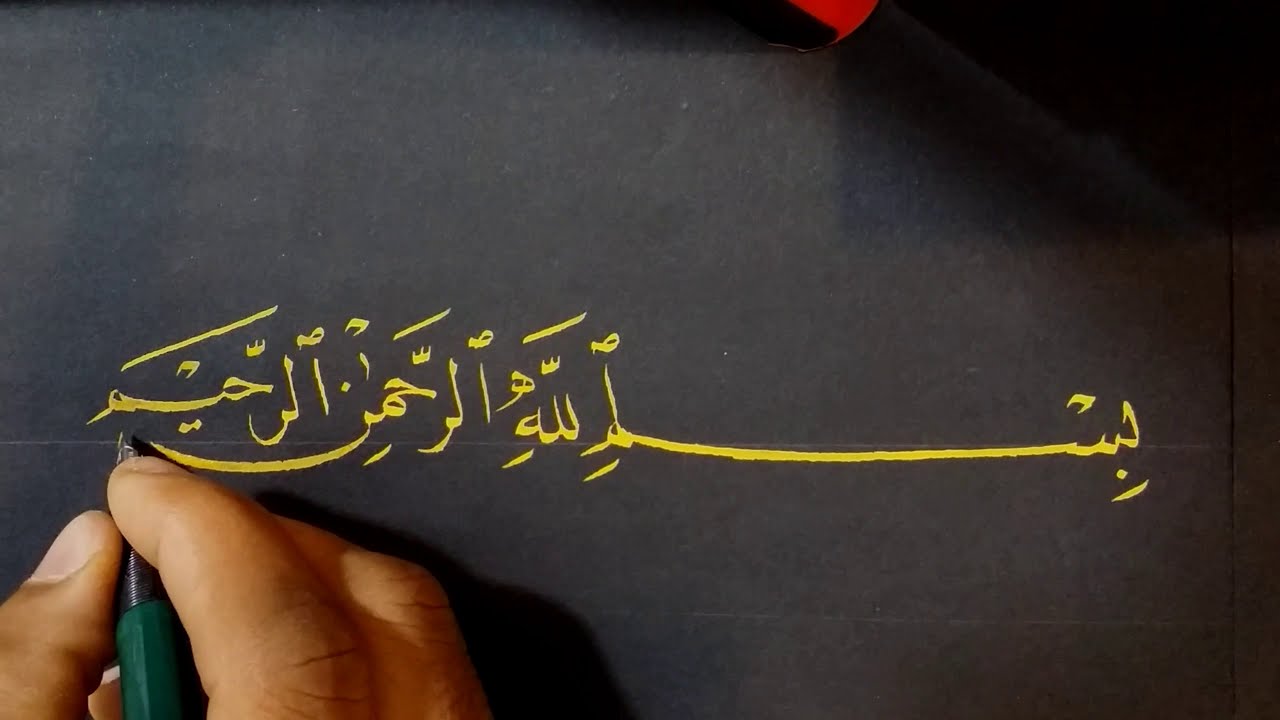 بِسْمِ ٱللَّهِ ٱلرَّحْمَٰنِ ٱلرَّحِيْمِ